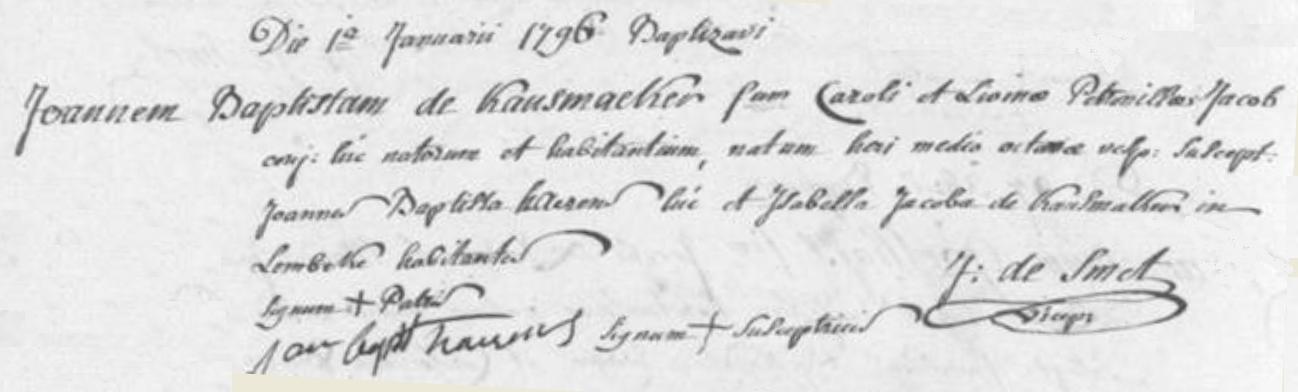 Die 1ª Januarii 1796 Baptizavi
Joannem Baptistam de Kausmaeker fum Caroli et Livinæ Petronillæ Jacob
conj: hic natorum et habitantium, natum heri media octava vesp: Suscept:
Joannes Baptista haerens hic et Isabella Jacoba de Kausmaker in
Lembeke habitantes
Signum + Patris
J: de Smet
jan bapt haerens Signum + Susceptricis
vicepr